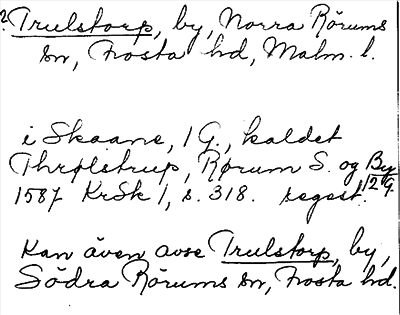 ? Trulstorp, by, Norra Rörums
sn, Frosta hd, Malm. l.
i Skaane, 1 G., kaldet
Thrølstrup, Rørum S. og By
12/9
1587 KrSk 1, s. 318. regest.
Kan även avse Trulstorp, by,
Södra Rörums sn, Frosta hd.